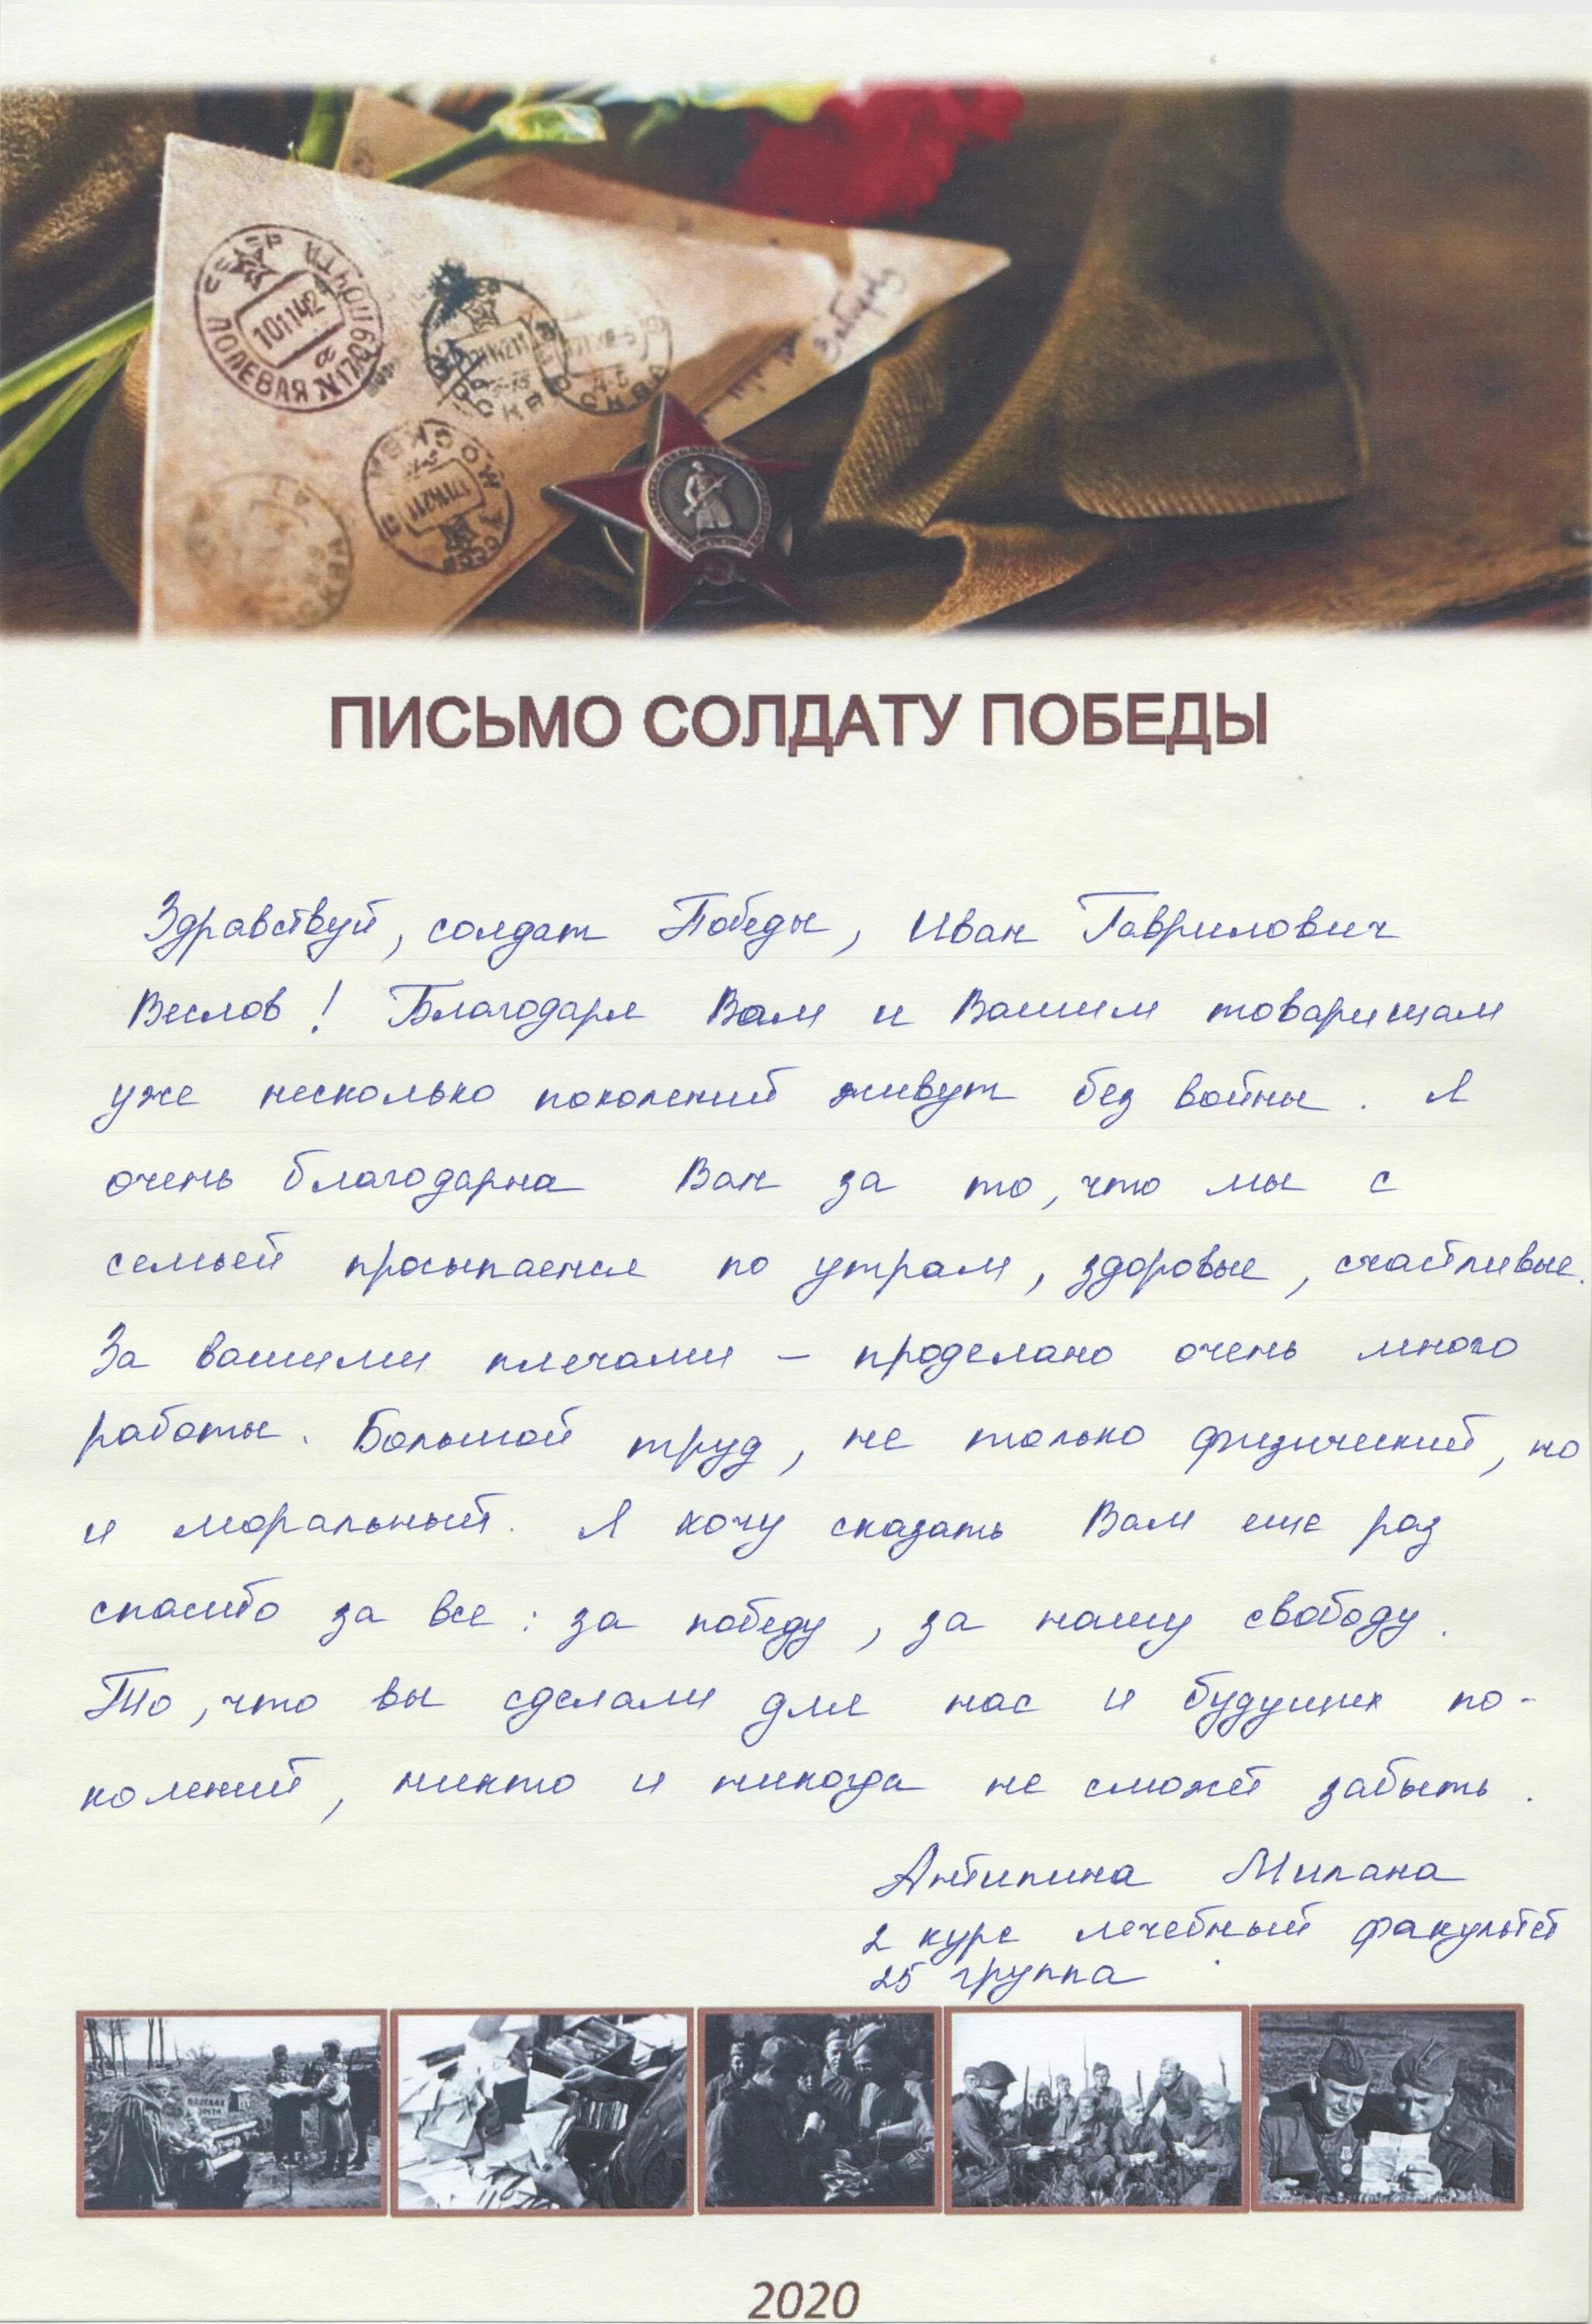 СССР ПОЧТА
101142
ПОЛЕВАЯ N1709
МОСКВА
МОСКВА
МОСКВА
СССР
ПИСЬМО СОЛДАТУ ПОБЕДЫ
Здравствуй, солдат Победы, Иван Гаврилович
Веслов! Благодаря Вам и Вашим товарищам
уже несколько поколений живут без войны. Я
очень благодарна Вам за то, что мы с
семьей просыпаемся по утрам, здоровые, счастливые.
За вашими плечами – проделано очень много
работы. Большой труд, не только физический, но
и моральный. Я хочу сказать Вам еще раз
спасибо за все: за победу, за нашу свободу.
То, что вы сделали для нас и будущих по-
колений, никто и никогда не сможет забыть.
Антипина Милана
2 курс лечебный факультет
25 группа
2020